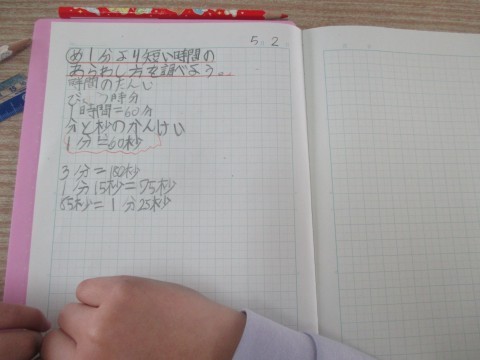 5.2
め 1分より短い時間の
あらわし方を調べよう。
時間のたんい
びょう 時 分
1時間=60分
分と秒のかんけい
1分=60秒
3分=180秒
1分15秒=75秒
85秒=1分25秒